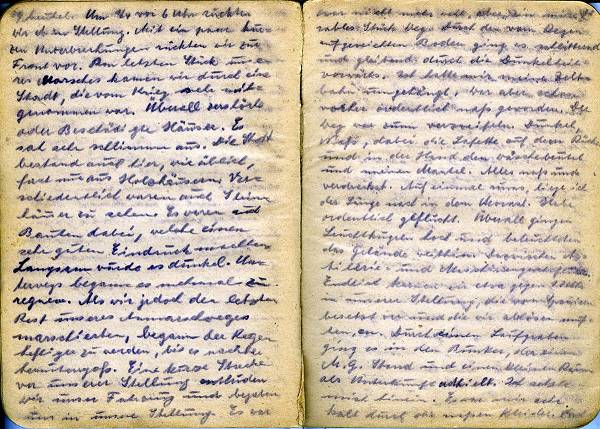 Um 1/4 vor 6 Uhr rückten
wir in Stellung. Mit ein paar kur-
zen Unterbrechungen rückten wir zur
Front vor. Am letzten Stück unse-
res Marsches kamen wir durch eine
Stadt, die vom Krieg sehr mitge-
genommen war. Überall zerstörte
oder Beschädigte Häuser. Es
sah sehr schlimm aus. Die Stadt
bestand auch hier, wie üblich,
fast nur aus Holzhäusern. Ver-
schiedentlich waren auch Stein-
häuser zu sehen. Es waren
Bauten dabei, welche einen
sehr guten Eindruck machten.
Langsam wurde es dunkel. Un-
terwegs begann es nochmal zu
regnen. Als wir jedoch den letzten
Rest unseres Anmarschweges
marschierten, begann der Regen
heftiger zu werden, bis es nachher
Eine kurze Strecke
vor unserer Stellung entluden
wir unser Fahrzeug und
uns in unsere Stellung. Es war
zwar nicht mehr weit, aber ein
Stück Weg. Durch den vom Regen
aufgeweichten Boden ging es schlitternd
und gleitend durch die Dunkelheit
vorwärts. Ich hatte mir meine Zelt-
bahn umgehängt, war aber schon
vorher ordentlich naß geworden. Der
Weg war zum verzweifeln. Dunkel,
naß, dabei die Lafette auf dem Rücken
und in der Hand den Wäschebeutel
und meinen Mantel. Alles naß und
verdreckt. Auf einmal liege ich
der Länge nach in dem Morast. Habe
ordentlich geflucht. Überall gingen
Leuchtkugeln hoch und beleuchteten
das Gelände
und
Endlich kamen wir etwa gegen
in unserer Stellung, die von Spaniern
besetzt war und die wir ablösen muß-
ten, an. Durch einen Laufgraben
ging es in den Bunker, der einen
M.G. Stand und einen kleinen Raum
als Unterkunft enthielt. Ich
mich hinein. Es war mir sehr
kalt durch die nassen Kleider. Und